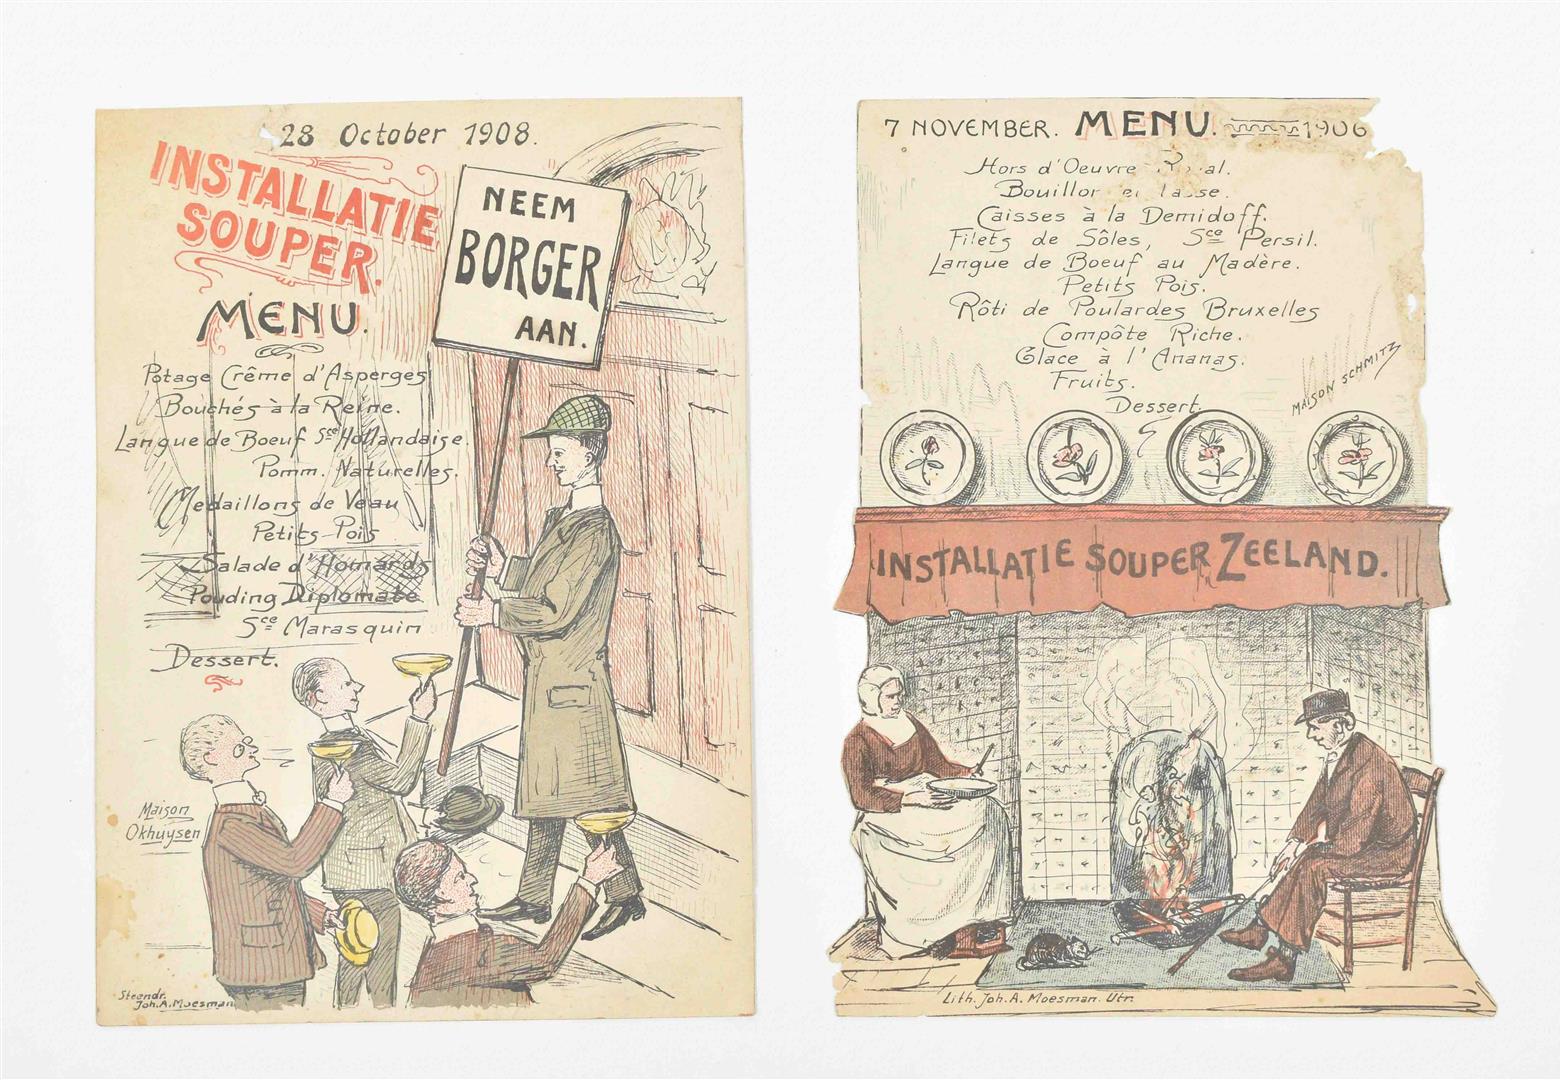 28 October 1908.
INSTALLATIE
SOUPER.
MENU.
Potage Crême d'Asperges
Bouchés à la Reine.
Langue de Boeuf Sce Hollandaise.
Pomm. Naturelles.
Medaillons de Veau
Petits Pois
Salade d'Homards
Pouding Diplomate
Sce Marasquin
Dessert.
NEEM
BORGER
AAN.
Maison
Okhuysen
Steendr.
Joh. A. Moesman
7 NOVEMBER. MENU. 1906
Hors d'Oeuvre
Bouillon en Tasse.
Caisses à la Demidoff.
Filets de Sôles, Sce Persil.
Langue de Boeuf au Madère.
Petits Pois.
Rôti de Poulardes Bruxelles
Compôte Riche.
Glace à l'Ananas.
Fruits.
Dessert.
MAISON SCHMITZ
INSTALLATIE SOUPER ZEELAND.
Lith. Joh. A. Moesman. Utr.